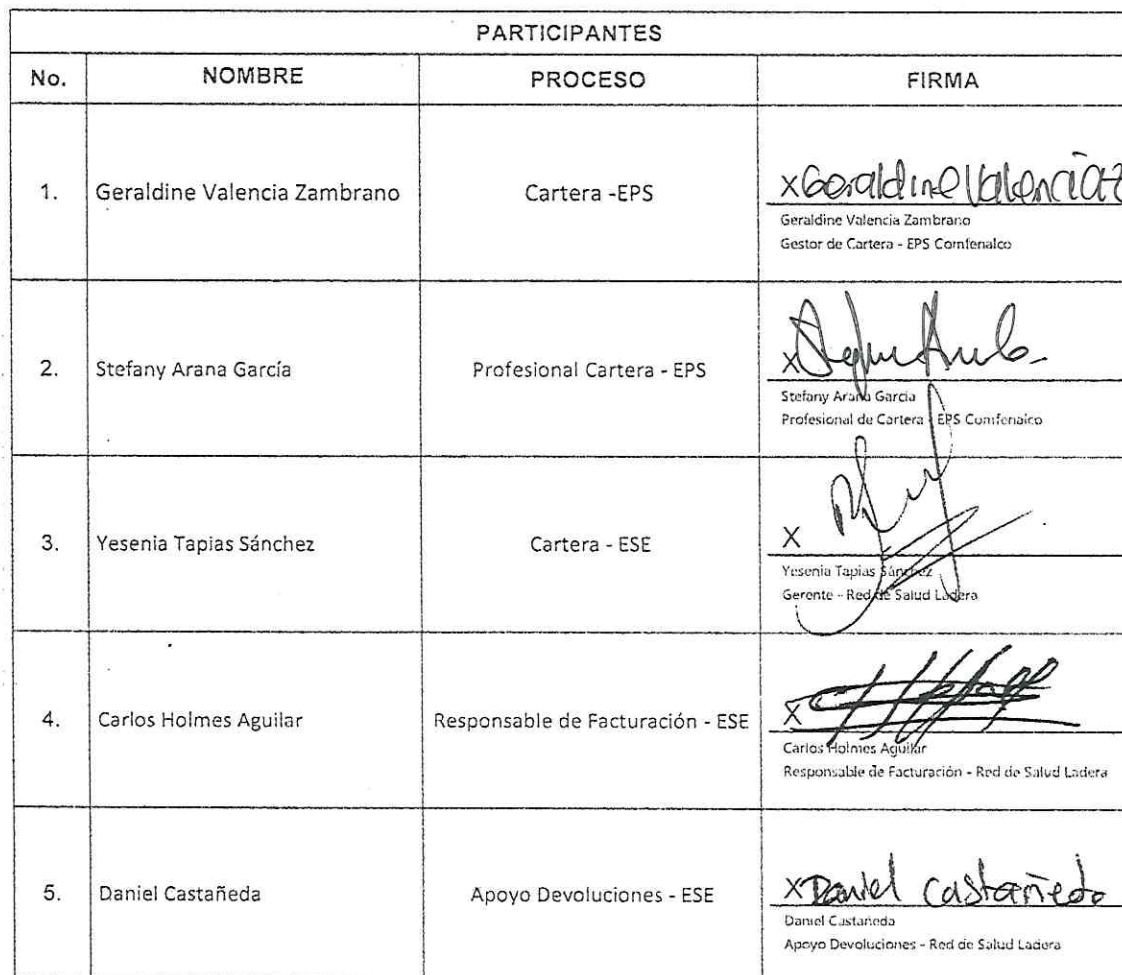 PARTICIPANTES
No. NOMBRE PROCESO FIRMA
1. Geraldine Valencia Zambrano Cartera -EPS XGeraldine Valencia Z
Geraldine Valencia Zambrano
Gestor de Cartera - EPS Comfenalco
2. Stefany Arana García Profesional Cartera - EPS X
Stefany Arana García
Profesional de Cartera - EPS Comfenalco
3. Yesenia Tapias Sánchez Cartera - ESE X
Yesenia Tapias Sánchez
Gerente - Red de Salud Ladera
4. Carlos Holmes Aguilar Responsable de Facturación - ESE X
Carlos Holmes Aguilar
Responsable de Facturación - Red de Salud Ladera
5. Daniel Castañeda Apoyo Devoluciones - ESE XDaniel Castañeda
Daniel Castañeda
Apoyo Devoluciones - Red de Salud Ladera